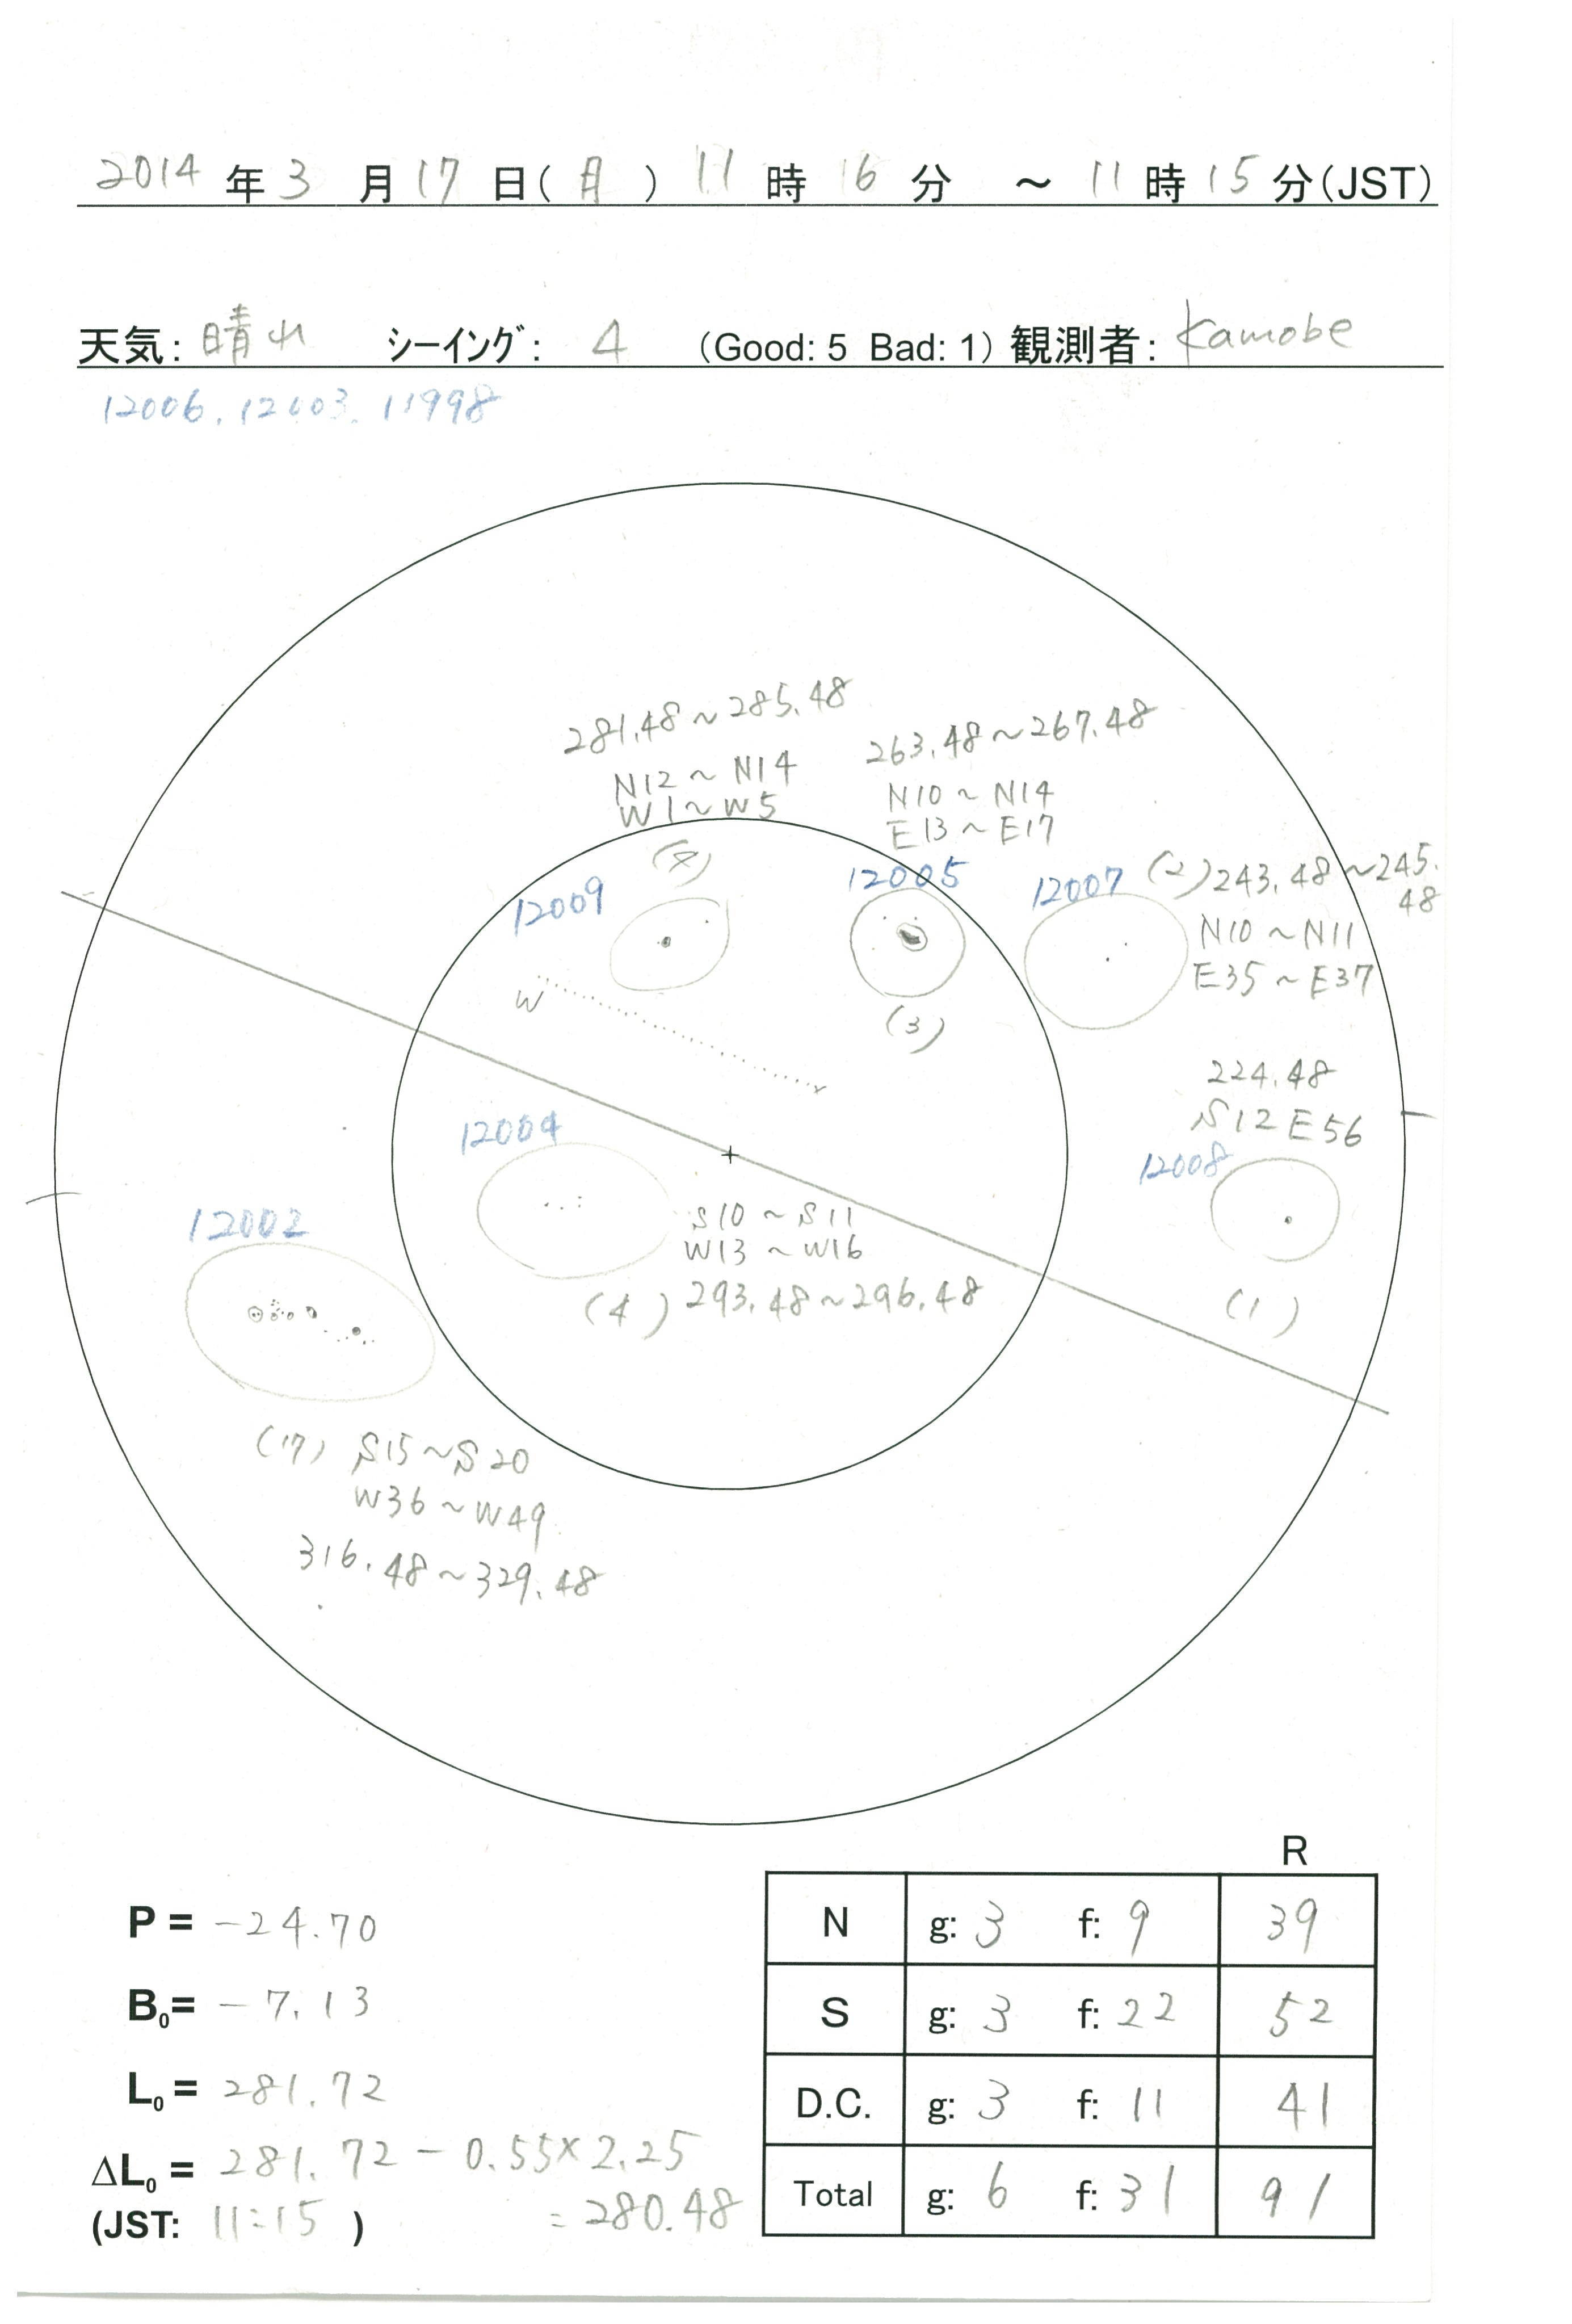 2014 年 3 月 17 日(月) 11 時 16 分 ~ 11 時 15 分(JST)
天気: 晴れ シーイング: 4 (Good: 5 Bad: 1) 観測者: Kamobe
12006, 12003, 11998
281.48~285.48
N12~N14
W1~W5
263.48~267.48
N10~N14
E13~E17
12009
12005
(3)
12007 (2) 243.48~245.48
N10~N11
E35~E37
W
224.48
S12 E56
12008
(1)
12004
S10~S11
W13~W16
(4) 293.48~296.48
12002
(17) S15~S20
W36~W49
316.48~329.48
P = -24.70
B₀= -7.13
L₀= 281.72
ΔL₀= 281.72-0.55×2.25
(JST: 11:15) =280.48
R
N g: 3 f: 9 39
S g: 3 f: 22 52
D.C. g: 3 f: 11 41
Total g: 6 f: 31 91